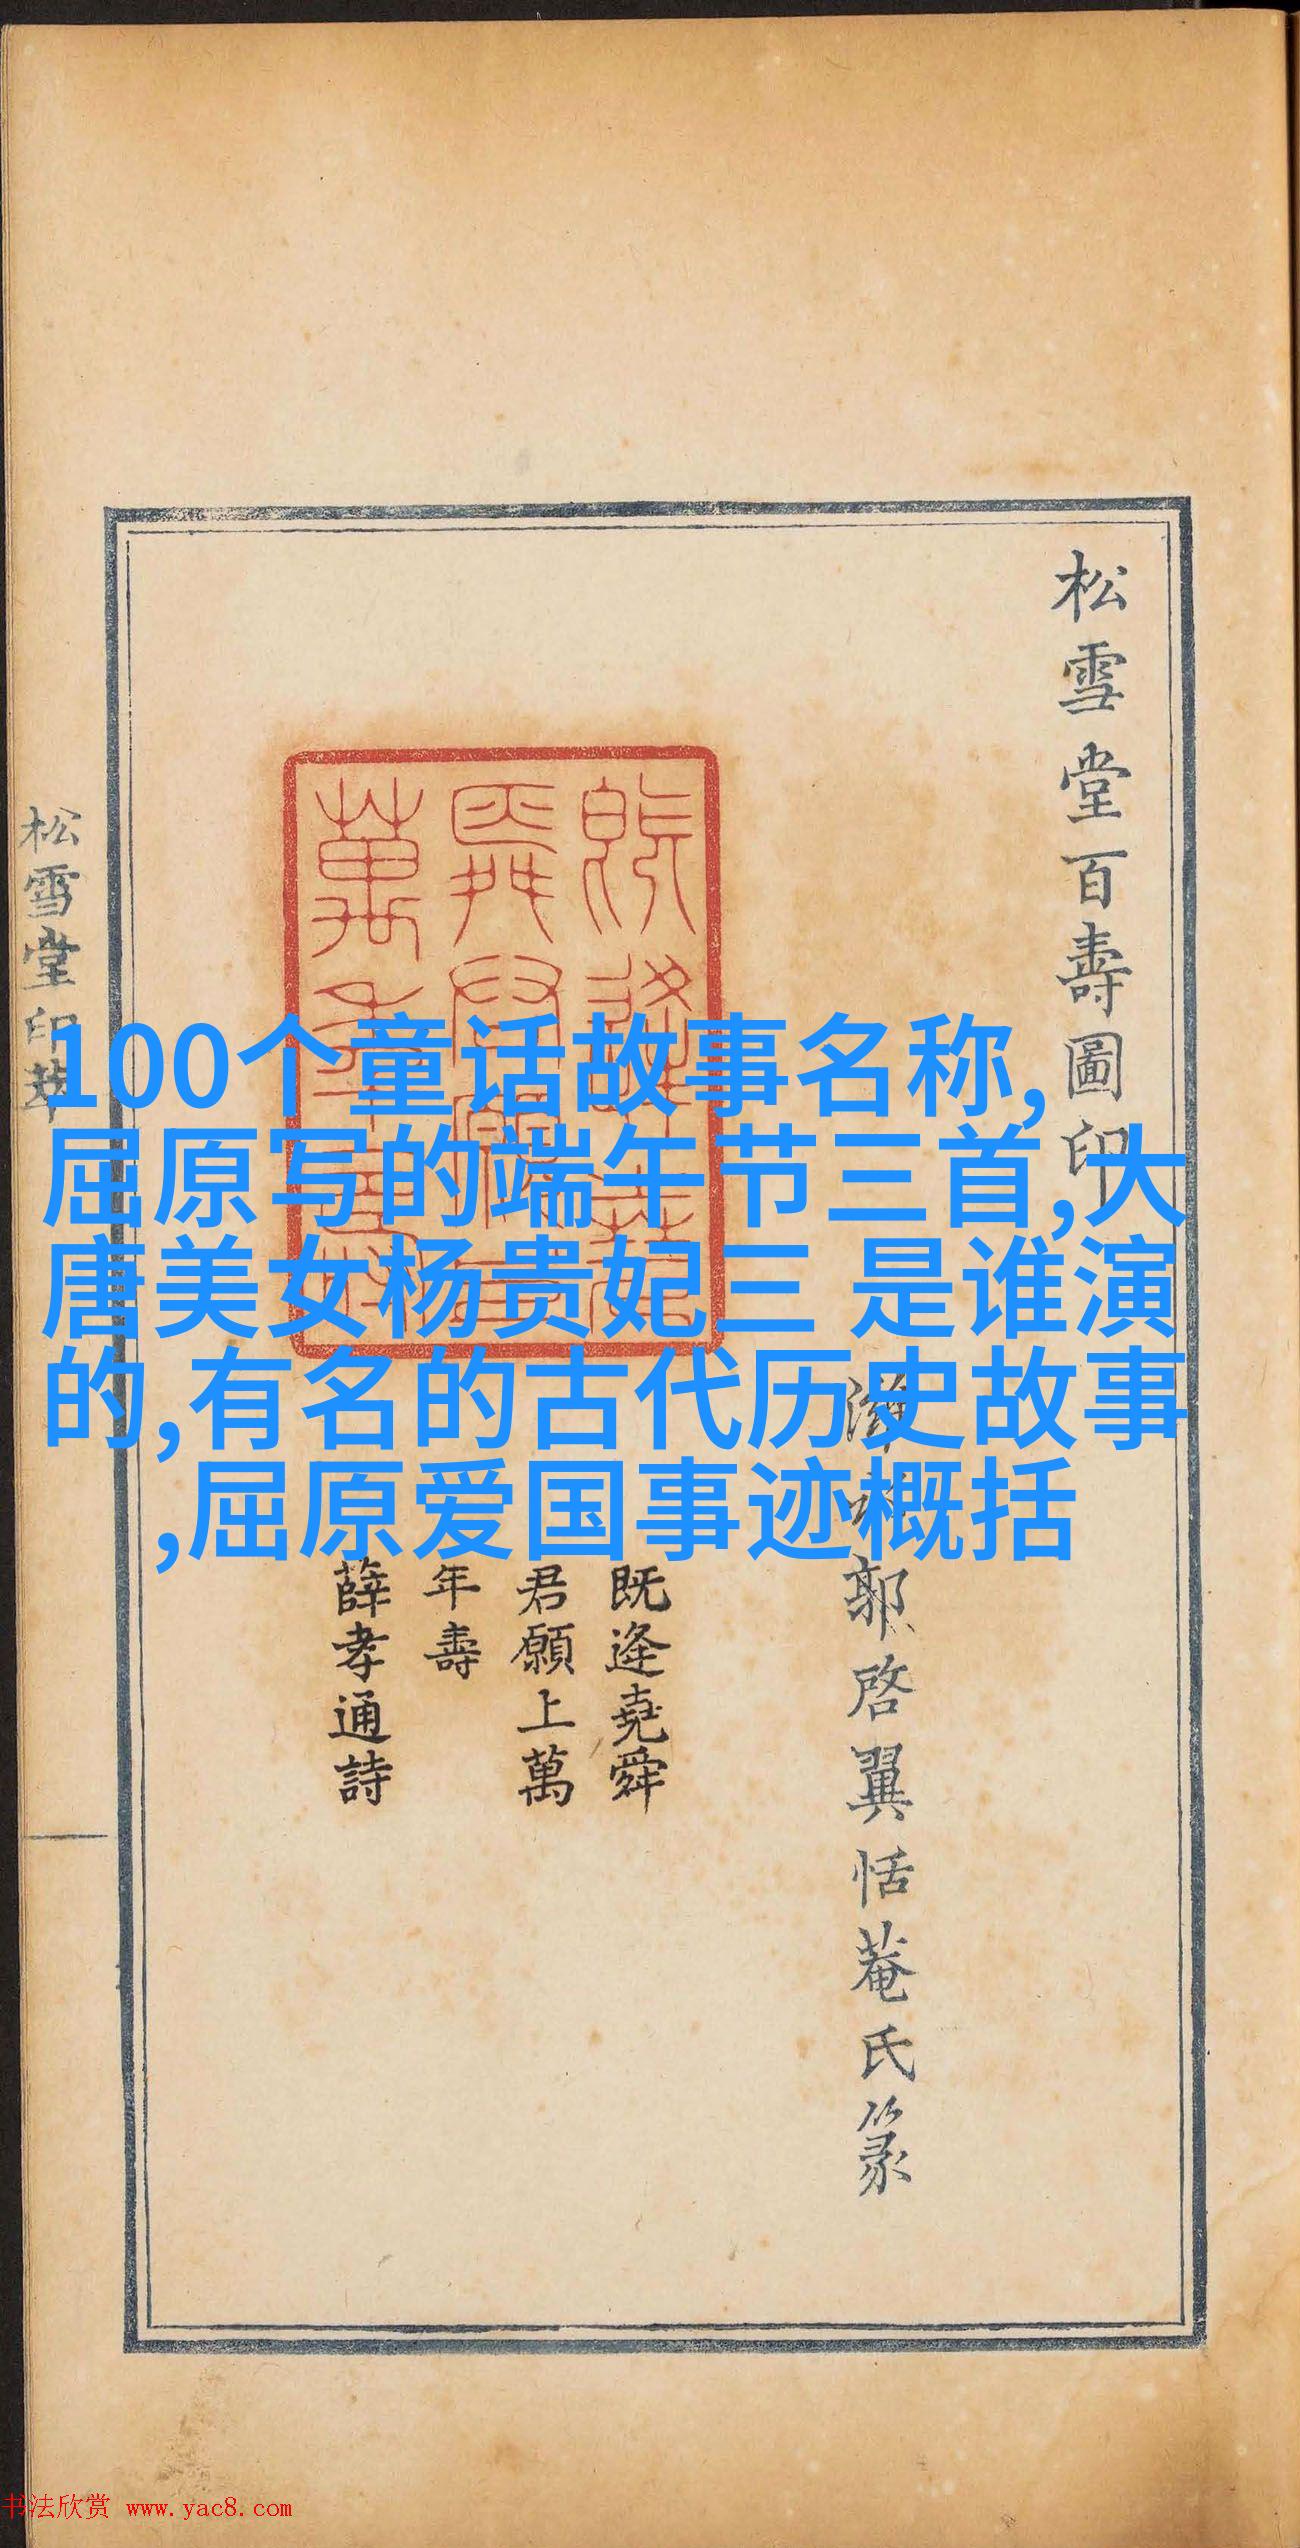 松雪堂百壽圖印
郭啓翼恬菴氏篆
既逢堯舜
君願上萬
年壽
薛孝通詩
松雪堂印萃
100个童话故事名称,
屈原写的端午节三首,大
唐美女杨贵妃三 是谁演
的,有名的古代历史故事
,屈原爱国事迹概括
书法欣赏 www.yac8.com